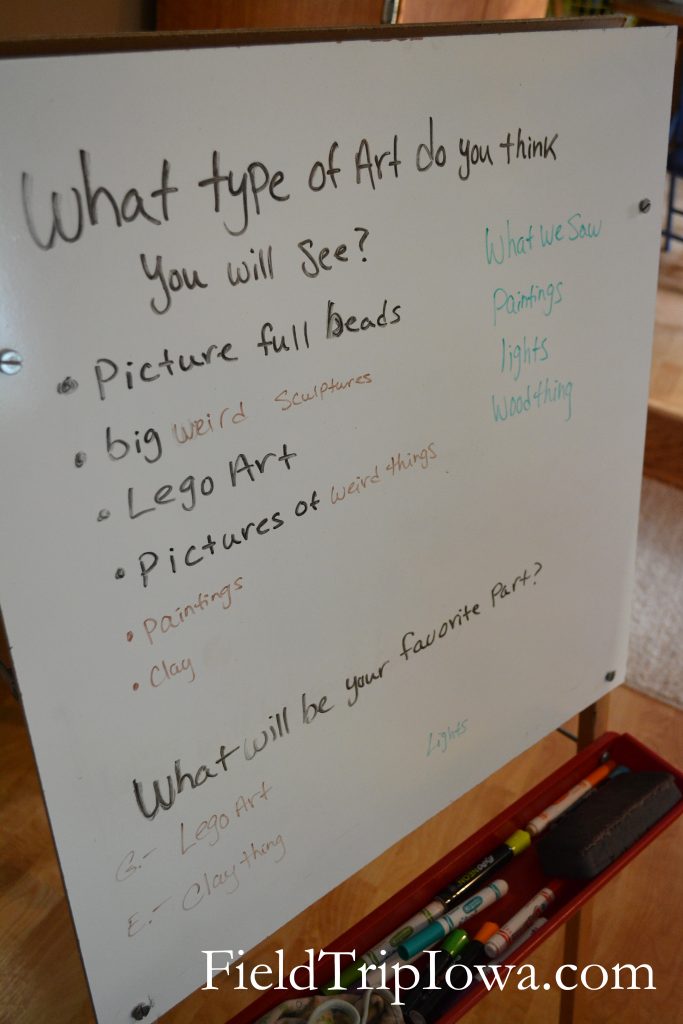 What type of Art do you think
you will see?
• Picture full beads
• big weird sculptures
• Lego Art
• Pictures of weird things
• Paintings
• Clay
What We Saw
Paintings
lights
Wood thing
What will be your favorite part?
Lights
G.- Lego Art
E.- Clay thing
FieldTripIowa.com